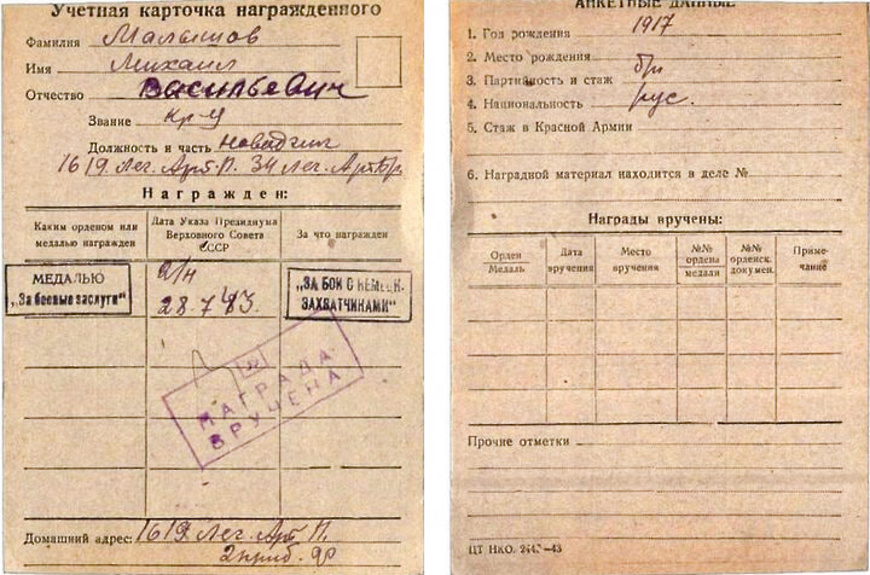 Учетная карточка награжденного
Фамилия Малышов
Имя Михаил
Отчество Васильевич
Звание кр-ц
Должность и часть наводчик
1619 Лег. Арт. П. 34 лег. Арт. Бр
Награжден:
Каким орденом или медалью награжден
Дата Указа Президиума Верховного Совета СССР
За что награжден
МЕДАЛЬЮ
„За боевые заслуги“
28.7.43.
„ЗА БОИ С НЕМЕЦК.
ЗАХВАТЧИКАМИ“
НАГРАДА
ВРУЧЕНА
Домашний адрес: 1619 Лег. Арт. П.
2 приб. фр
АНКЕТНЫЕ ДАННЫЕ
1. Год рождения 1917
2. Место рождения
3. Партийность и стаж б/п
4. Национальность рус.
5. Стаж в Красной Армии
6. Наградной материал находится в деле №
Награды вручены:
Орден
Медаль
Дата вручения
Место вручения
№№ ордена медали
№№ орденск. докумен.
Примечание
Прочие отметки
ЦТ НКО.